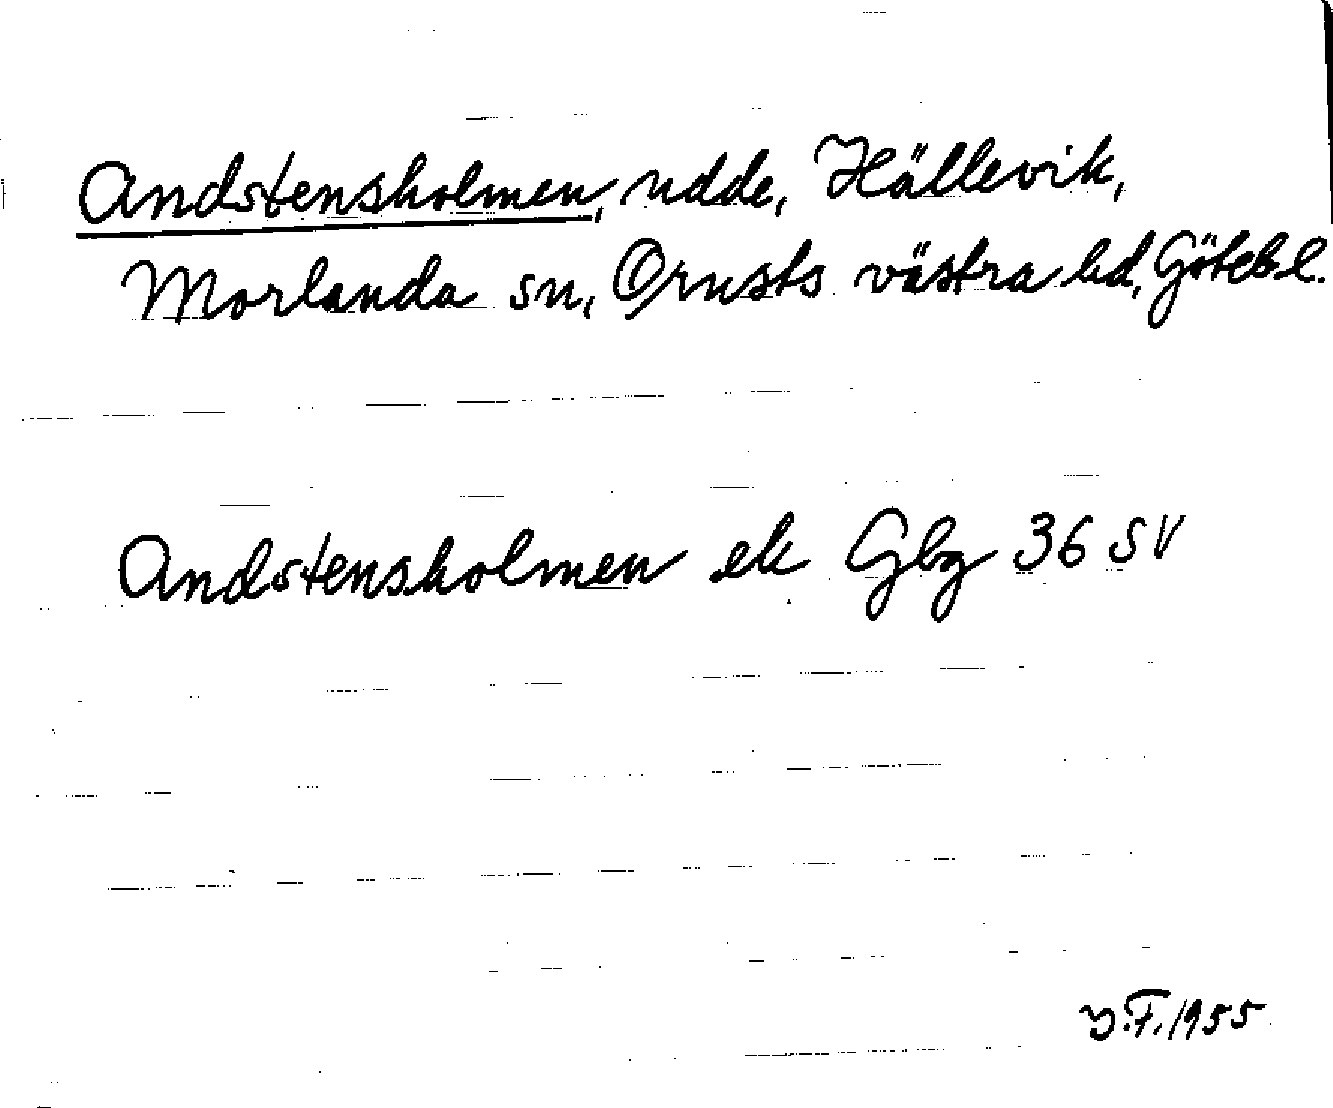 Andstensholmen, udde, Hällevik,
Morlanda sn, Orusts västra hd, Götebl.
Andstensholmen ek Gbg 36 SV
Y.F. 1955